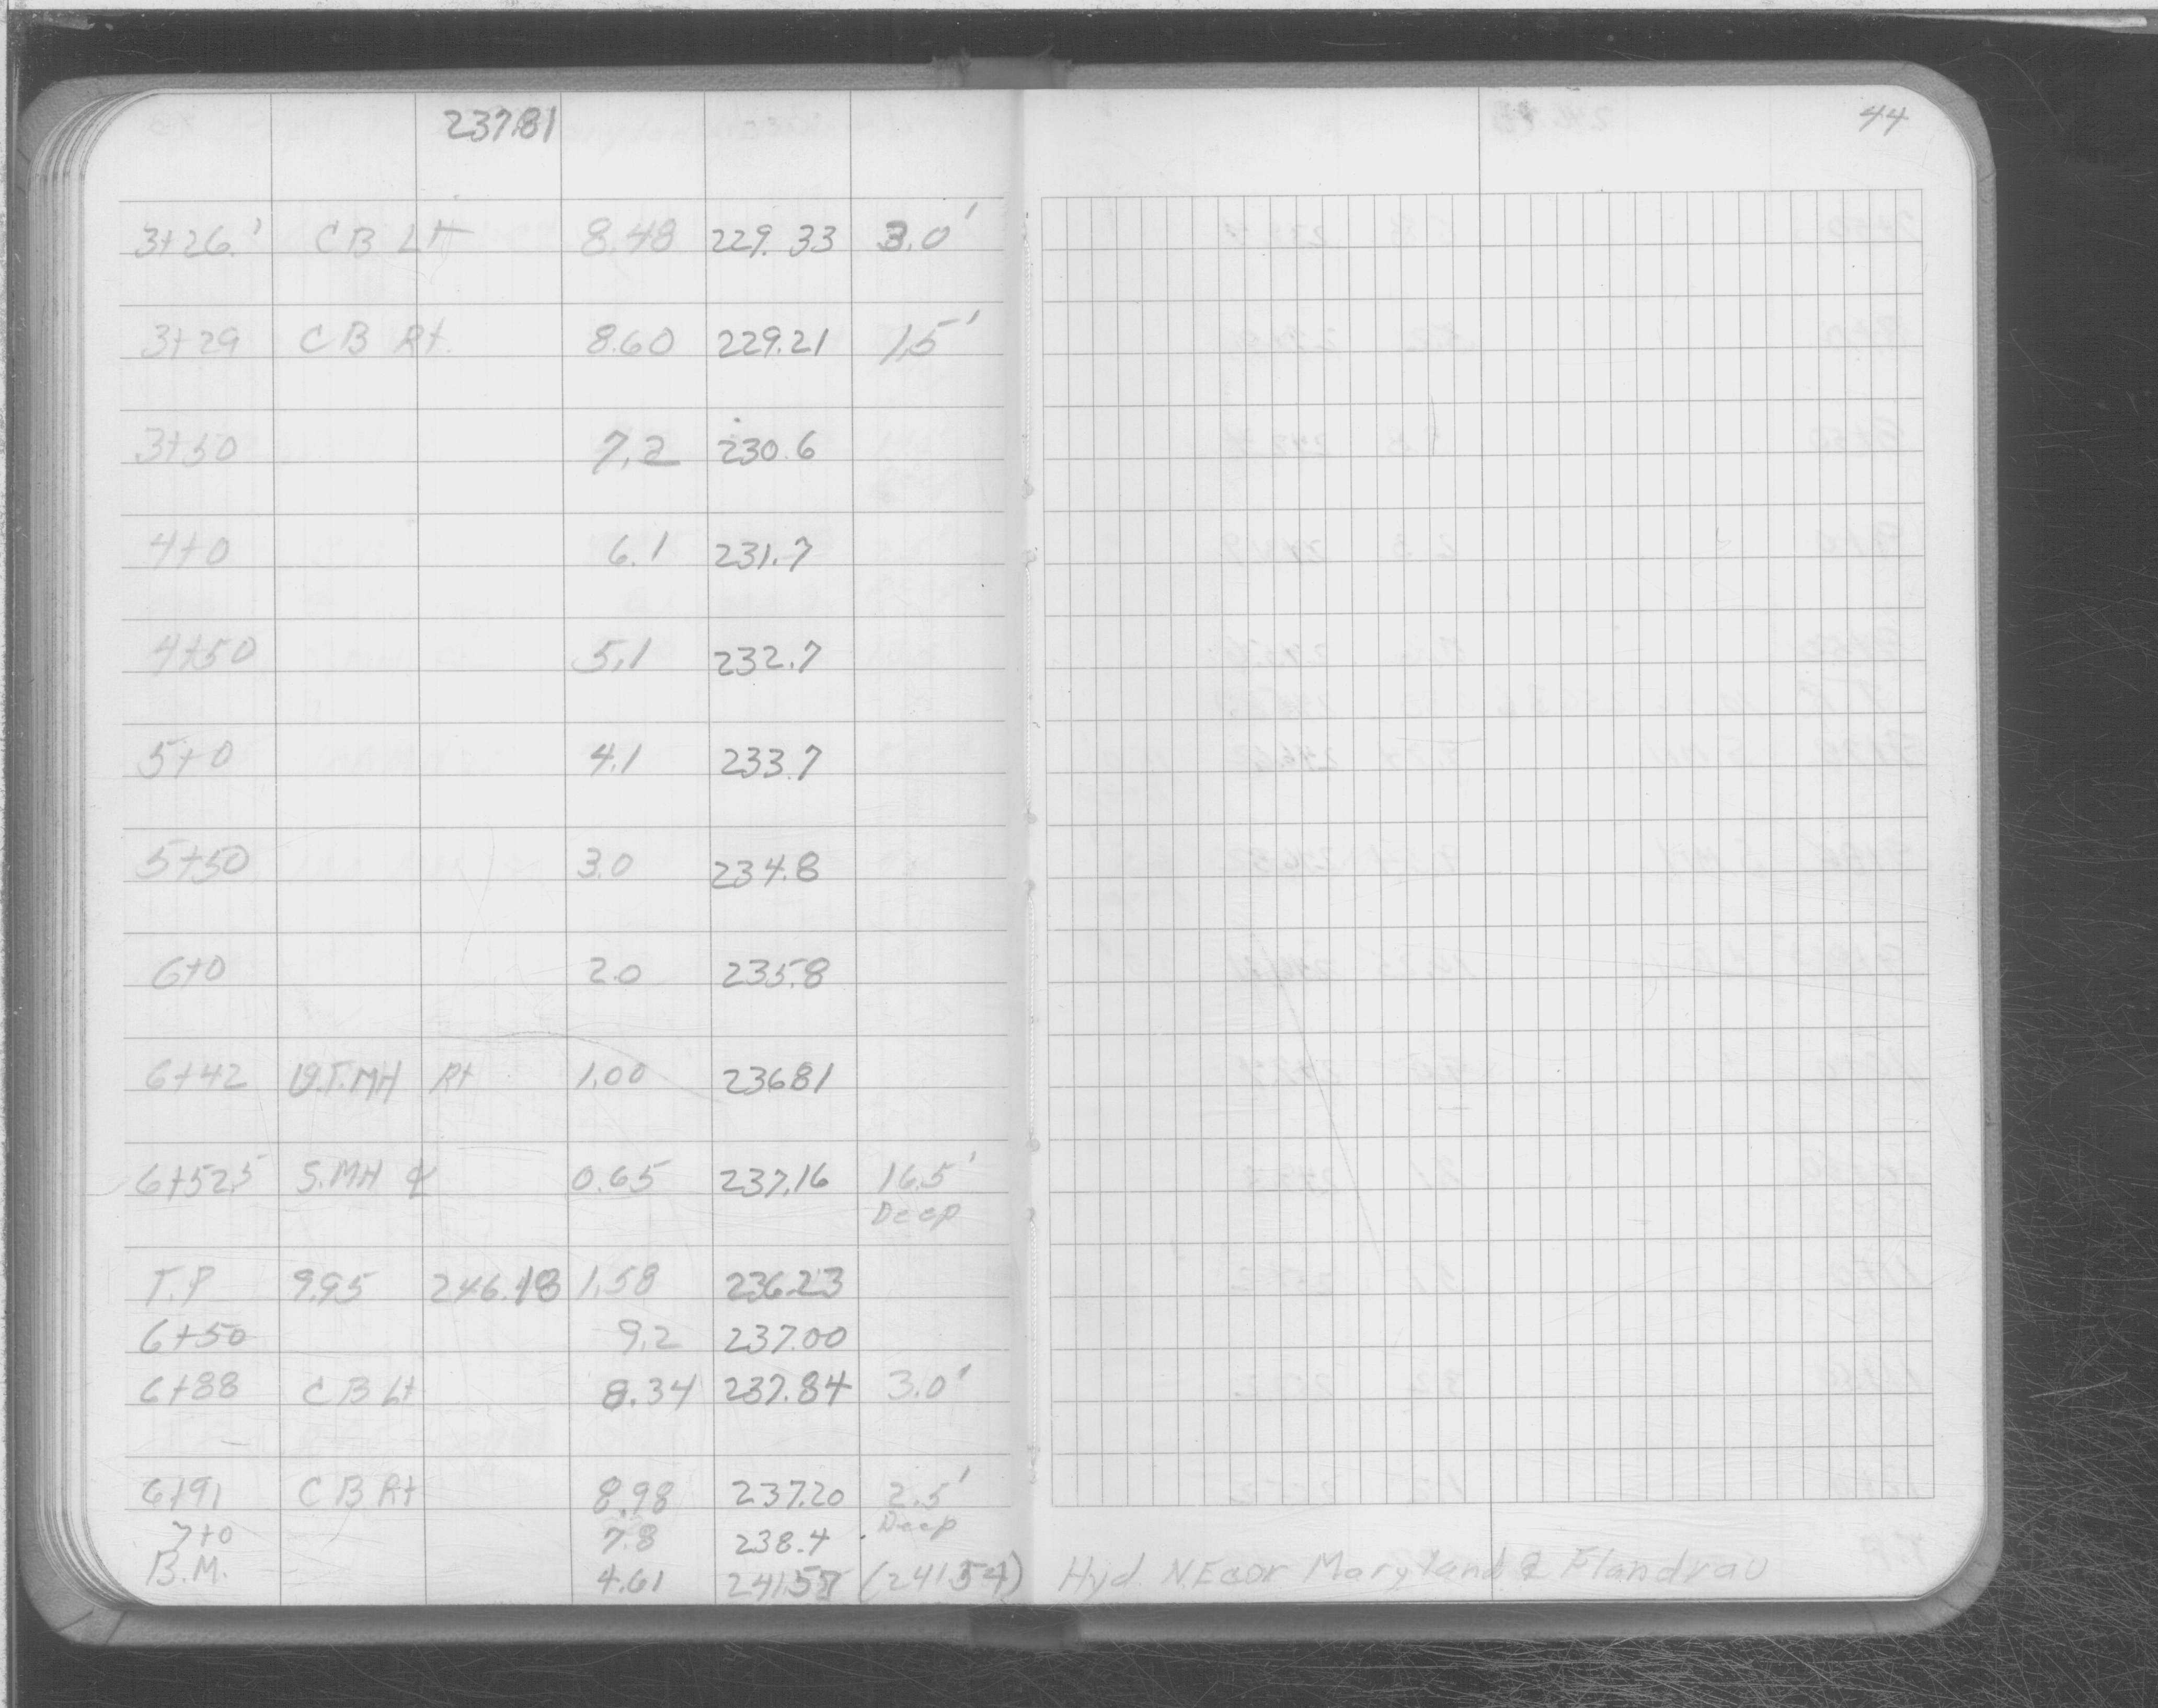 237.81
44
3+26.' CB Lt 8.48 229.33 3.0'
3+29 CB Rt. 8.60 229.21 1.5'
3+50 7.2 230.6
4+0 6.1 231.7
4+50 5.1 232.7
5+0 4.1 233.7
5+50 3.0 234.8
6+0 2.0 235.8
6+42 U.T.MH Rt 1.00 236.81
6+52.5 S.MH ℄ 0.65 237.16 16.5'
Deep
T.P 9.95 246.18 1.58 236.23
6+50 9.2 237.00
6+88 CB Lt 8.34 237.84 3.0'
6+91 CB Rt 8.98 237.20 2.5'
Deep
7+0 7.8 238.4
B.M. 4.61 241.57 (241.54) Hyd. N.E cor Maryland & Flandrau